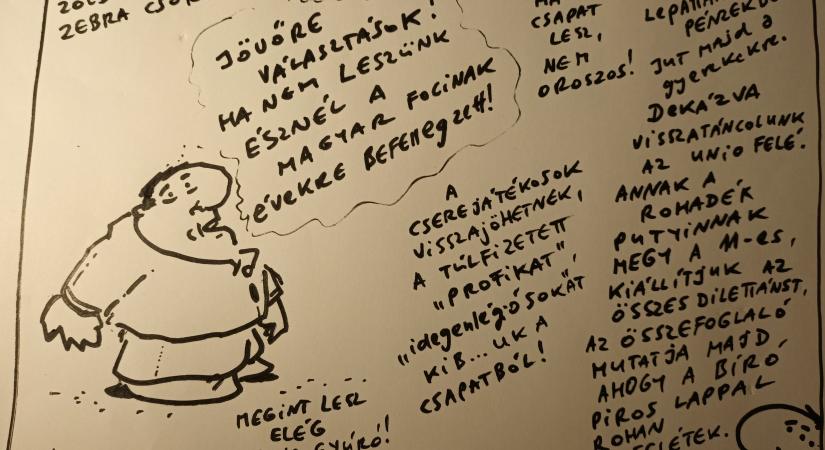 ZEBRA
JÖVŐRE
VÁLASZTÁSOK!
HA NEM LESZÜNK
ÉSZNÉL A
MAGYAR FOCINAK
ÉVEKRE BEFELLEgzett!
CSAPAT
LESZ,
NEM
OROSZOS!
A
CSEREJÁTÉKOSOK
VISSZAJÖHETNÉK,
A TÚLFIZETETT
„PROFIKAT”,
„idegenlégiósokAT
KIB...UK A
CSAPATBÓL!
MEGINT LESZ
ELÉG
PÉNZEK
JUT MAJD A
gyerekekre.
DEKÁZVA
VISSZATÁNCOLUNK
AZ UNIÓ FELÉ.
ANNAK A
ROHADÉK
PUTYINNAK
MEGY A 11-ES,
KIÁLLÍTJUK AZ
ÖSSZES DILETTÁNST,
AZ ÖSSZEFOGLALÓ
MUTATJA MAJD
AHOGY A BÍRÓ
PIROS LAPPAL
ROHAN